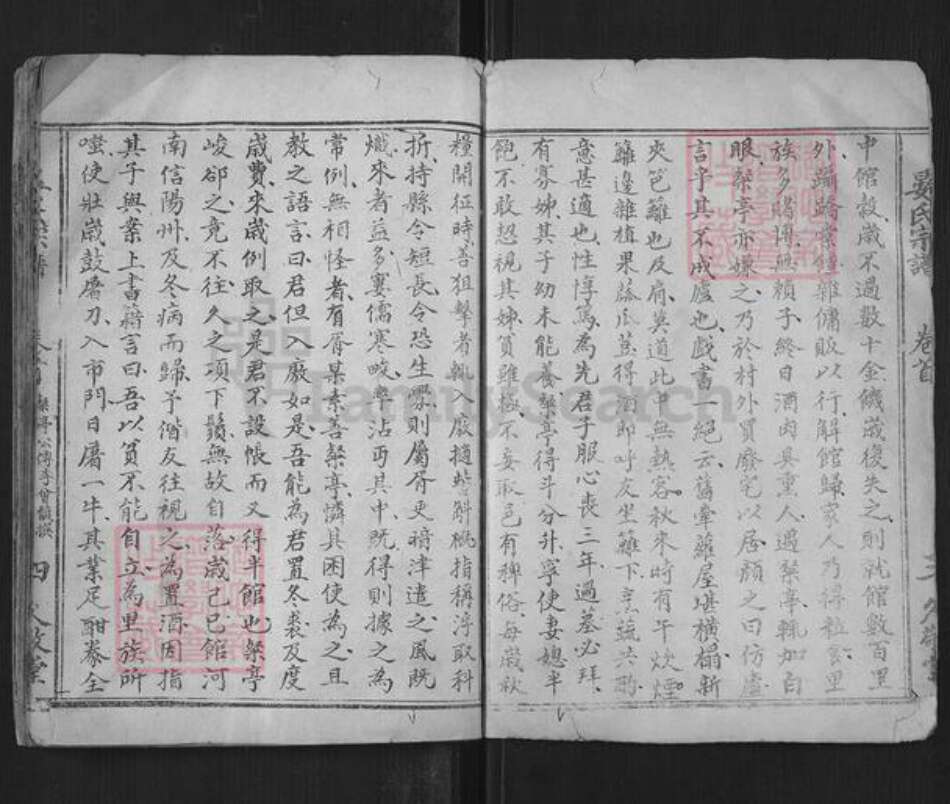 晏氏宗譜 卷首 三
中館穀歲不過數十金饑歲復失之則就館數百里
外躡蹻業雜傭販以行解館歸家人乃得粒食里
族多賭博無賴子終日酒肉具熏人遇椉亭輒加白
眼椉亭亦嫌之乃於村外買廢宅以居顏之曰仿廬
言乎其不成廬也戲書一絕云舊牽蘿屋堪橫榻新
夾笆籬也及肩莫道此中無熱客秋來時有午炊煙
籬邊雜植果蓏瓜荳得酒即呼友坐籬下烹蔬共酌
意甚適也性惇篤為先君子服心喪三年過墓必拜
有寡姊其子幼未能養椉亭得斗分升寧使妻媳半
飽不敢恝視其姊貧雖極不妄取邑有稗俗每歲秋
糧開征時善狙擊者輒入廒擿斛概指稱浮取科
折持縣令短長令恐生釁則屬胥吏暗津遣之風既
熾來者益多寠儒寒畯率沾丐其中既得則據之為
常例無相怪者有胥某素善椉亭憐其困使為之且
教之語言曰君但入廒如是吾能為君置冬裘及度
歲費來歲例取之是君不設帳而又得半館也椉亭
峻卻之竟不往久之項下鬚無故自落歲己巳館河
南信陽州及冬病而歸予偕友往視之為置酒因指
其子與業上書籍言曰吾以貧不能自立為里族所
嗤使壯歲鼓屠刀入市門日屠一牛其業足酣豢全
卷首 四